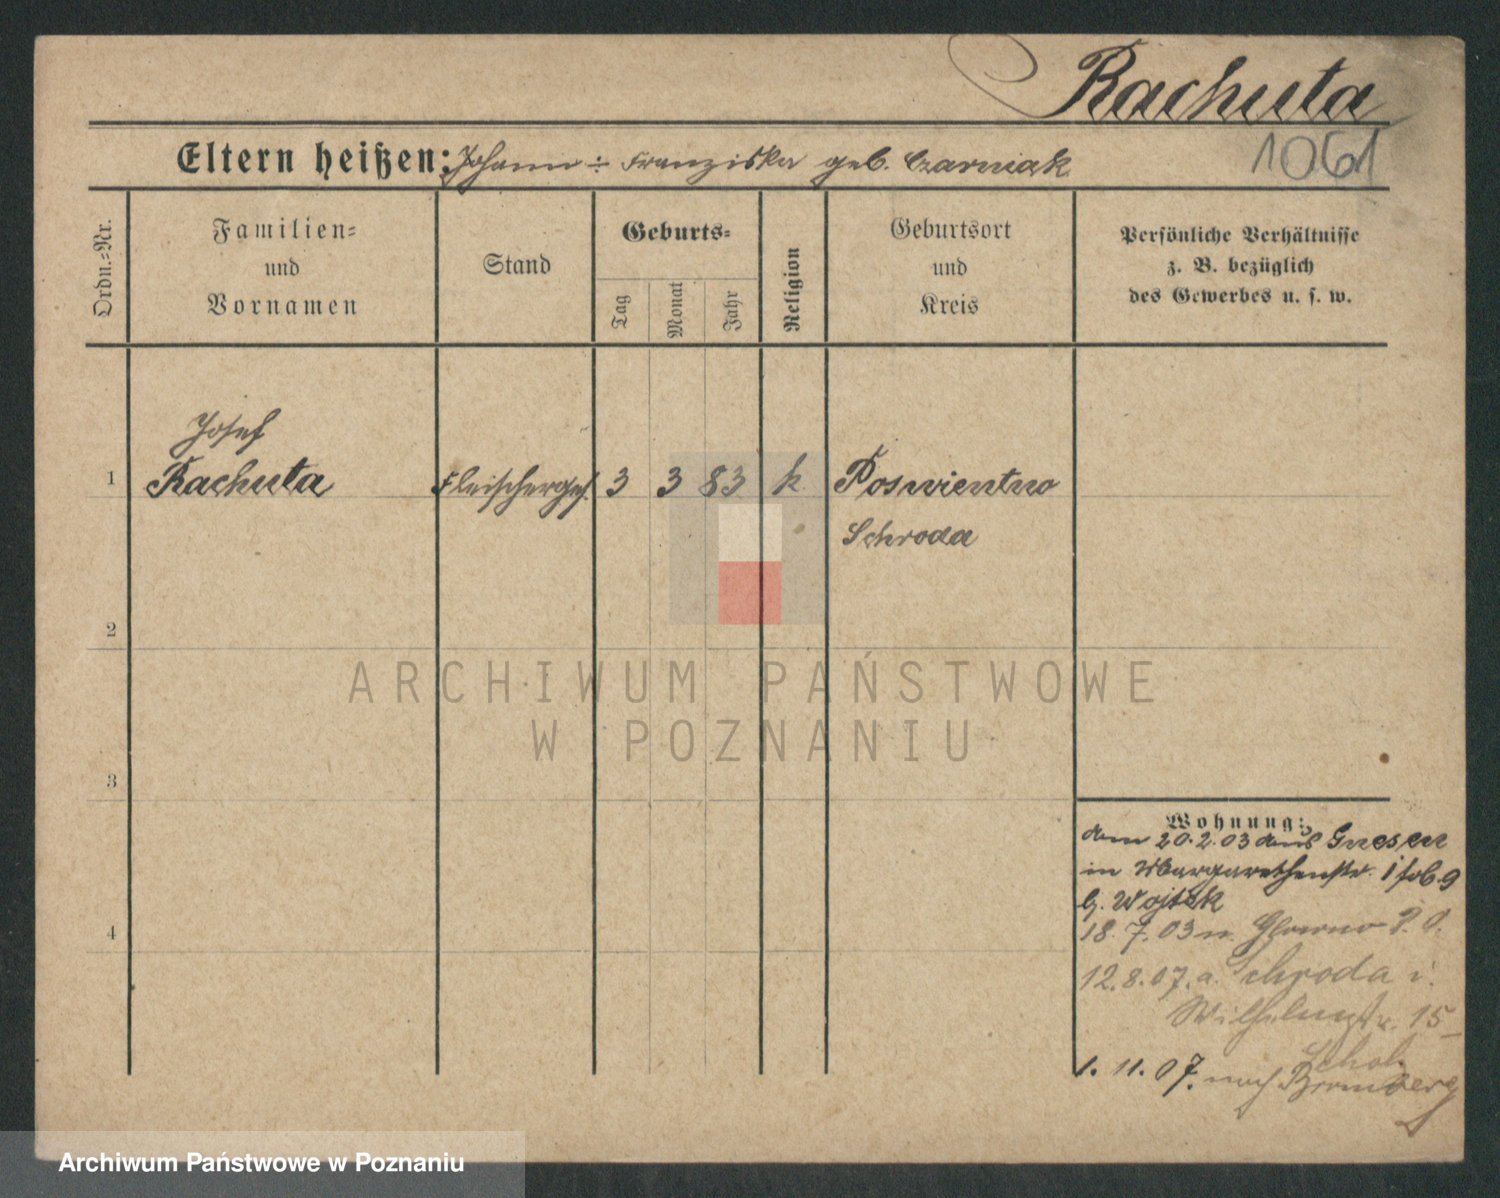 Rachuta
1061
Eltern heißen: Johann ÷ Franziska geb. Czarniak
Ordn.=Nr.
Familien=
und
Vornamen
Stand
Geburts=
Tag
Monat
Jahr
Religion
Geburtsort
und
Kreis
Persönliche Verhältnisse
z. B. bezüglich
des Gewerbes u. s. w.
Josef
1 Rachuta Fleischerges. 3 3 83 k. Poswientno
Schroda
2
3
4
Wohnung:
20.2.03 aus Gnesen
in Margarethenstr.
b. Wojtek
18. 7. 03 n.
12.8.07. a. Schroda i.
Wilhelmstr. 15
1. 11. 07. nach Bromberg
ARCHIWUM PAŃSTWOWE
W POZNANIU
Archiwum Państwowe w Poznaniu